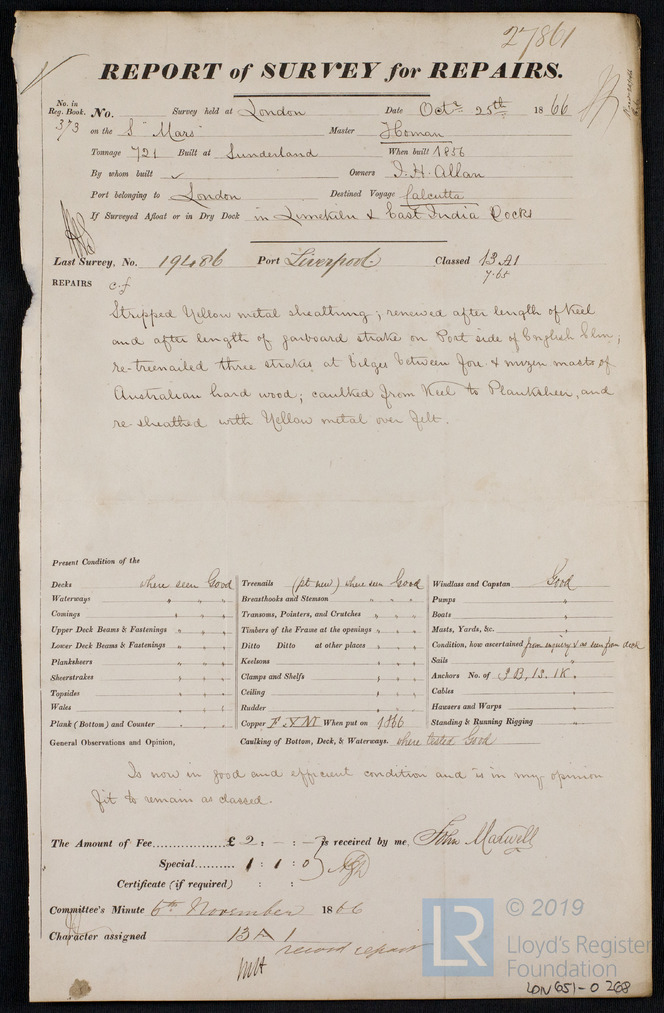 27861
REPORT of SURVEY for REPAIRS.
No. in Reg. Book. No. Survey held at London Date Octr 25th 1866
373 on the S "Mars" Master Homan
Tonnage 721 Built at Sunderland When built 1856
By whom built Owners J. H. Allan
Port belonging to London Destined Voyage Calcutta
If Surveyed Afloat or in Dry Dock in Limekiln & East India Docks
Last Survey, No. 19486 Port Liverpool Classed 13 A1
7.65
REPAIRS
Stripped Yellow metal sheathing; renewed after length of Keel
and after length of garboard strake on Port side of English Elm;
re-treenailed three strakes at bilges between fore & mizen masts of
Australian hard wood; caulked from Keel to Planksheer, and
re-sheathed with Yellow metal over felt.
Present Condition of the
Decks where seen Good Treenails (pt new) where seen Good Windlass and Capstan Good
Waterways " " " Breasthooks and Stemson " " " Pumps "
Comings " " " Transoms, Pointers, and Crutches " " " Boats "
Upper Deck Beams & Fastenings " " " Timbers of the Frame at the openings " " " Masts, Yards, &c. "
Lower Deck Beams & Fastenings " " " Ditto Ditto at other places " " " Condition, how ascertained from inquiry & as seen from deck
Planksheers " " " Keelsons " " " Sails "
Sheerstrakes " " " Clamps and Shelfs " " " Anchors No. of 3 B, 1 S, 1 K.
Topsides " " " Ceiling " " " Cables "
Wales " " " Rudder " " " Hawsers and Warps "
Plank (Bottom) and Counter " " " Copper F X M When put on 1866 Standing & Running Rigging "
General Observations and Opinion, Caulking of Bottom, Deck, & Waterways. where tested Good
Is now in good and efficient condition and is in my opinion
fit to remain as classed.
The Amount of Fee............... £ 2 : - : - is received by me, John Maxwell
Special.......... 1 : 1 : 0
Certificate (if required) : :
Committee's Minute 6th November 1866
Character assigned 13 A 1
record report
LR
© 2019
Lloyd's Register
Foundation
LON 651-0 268